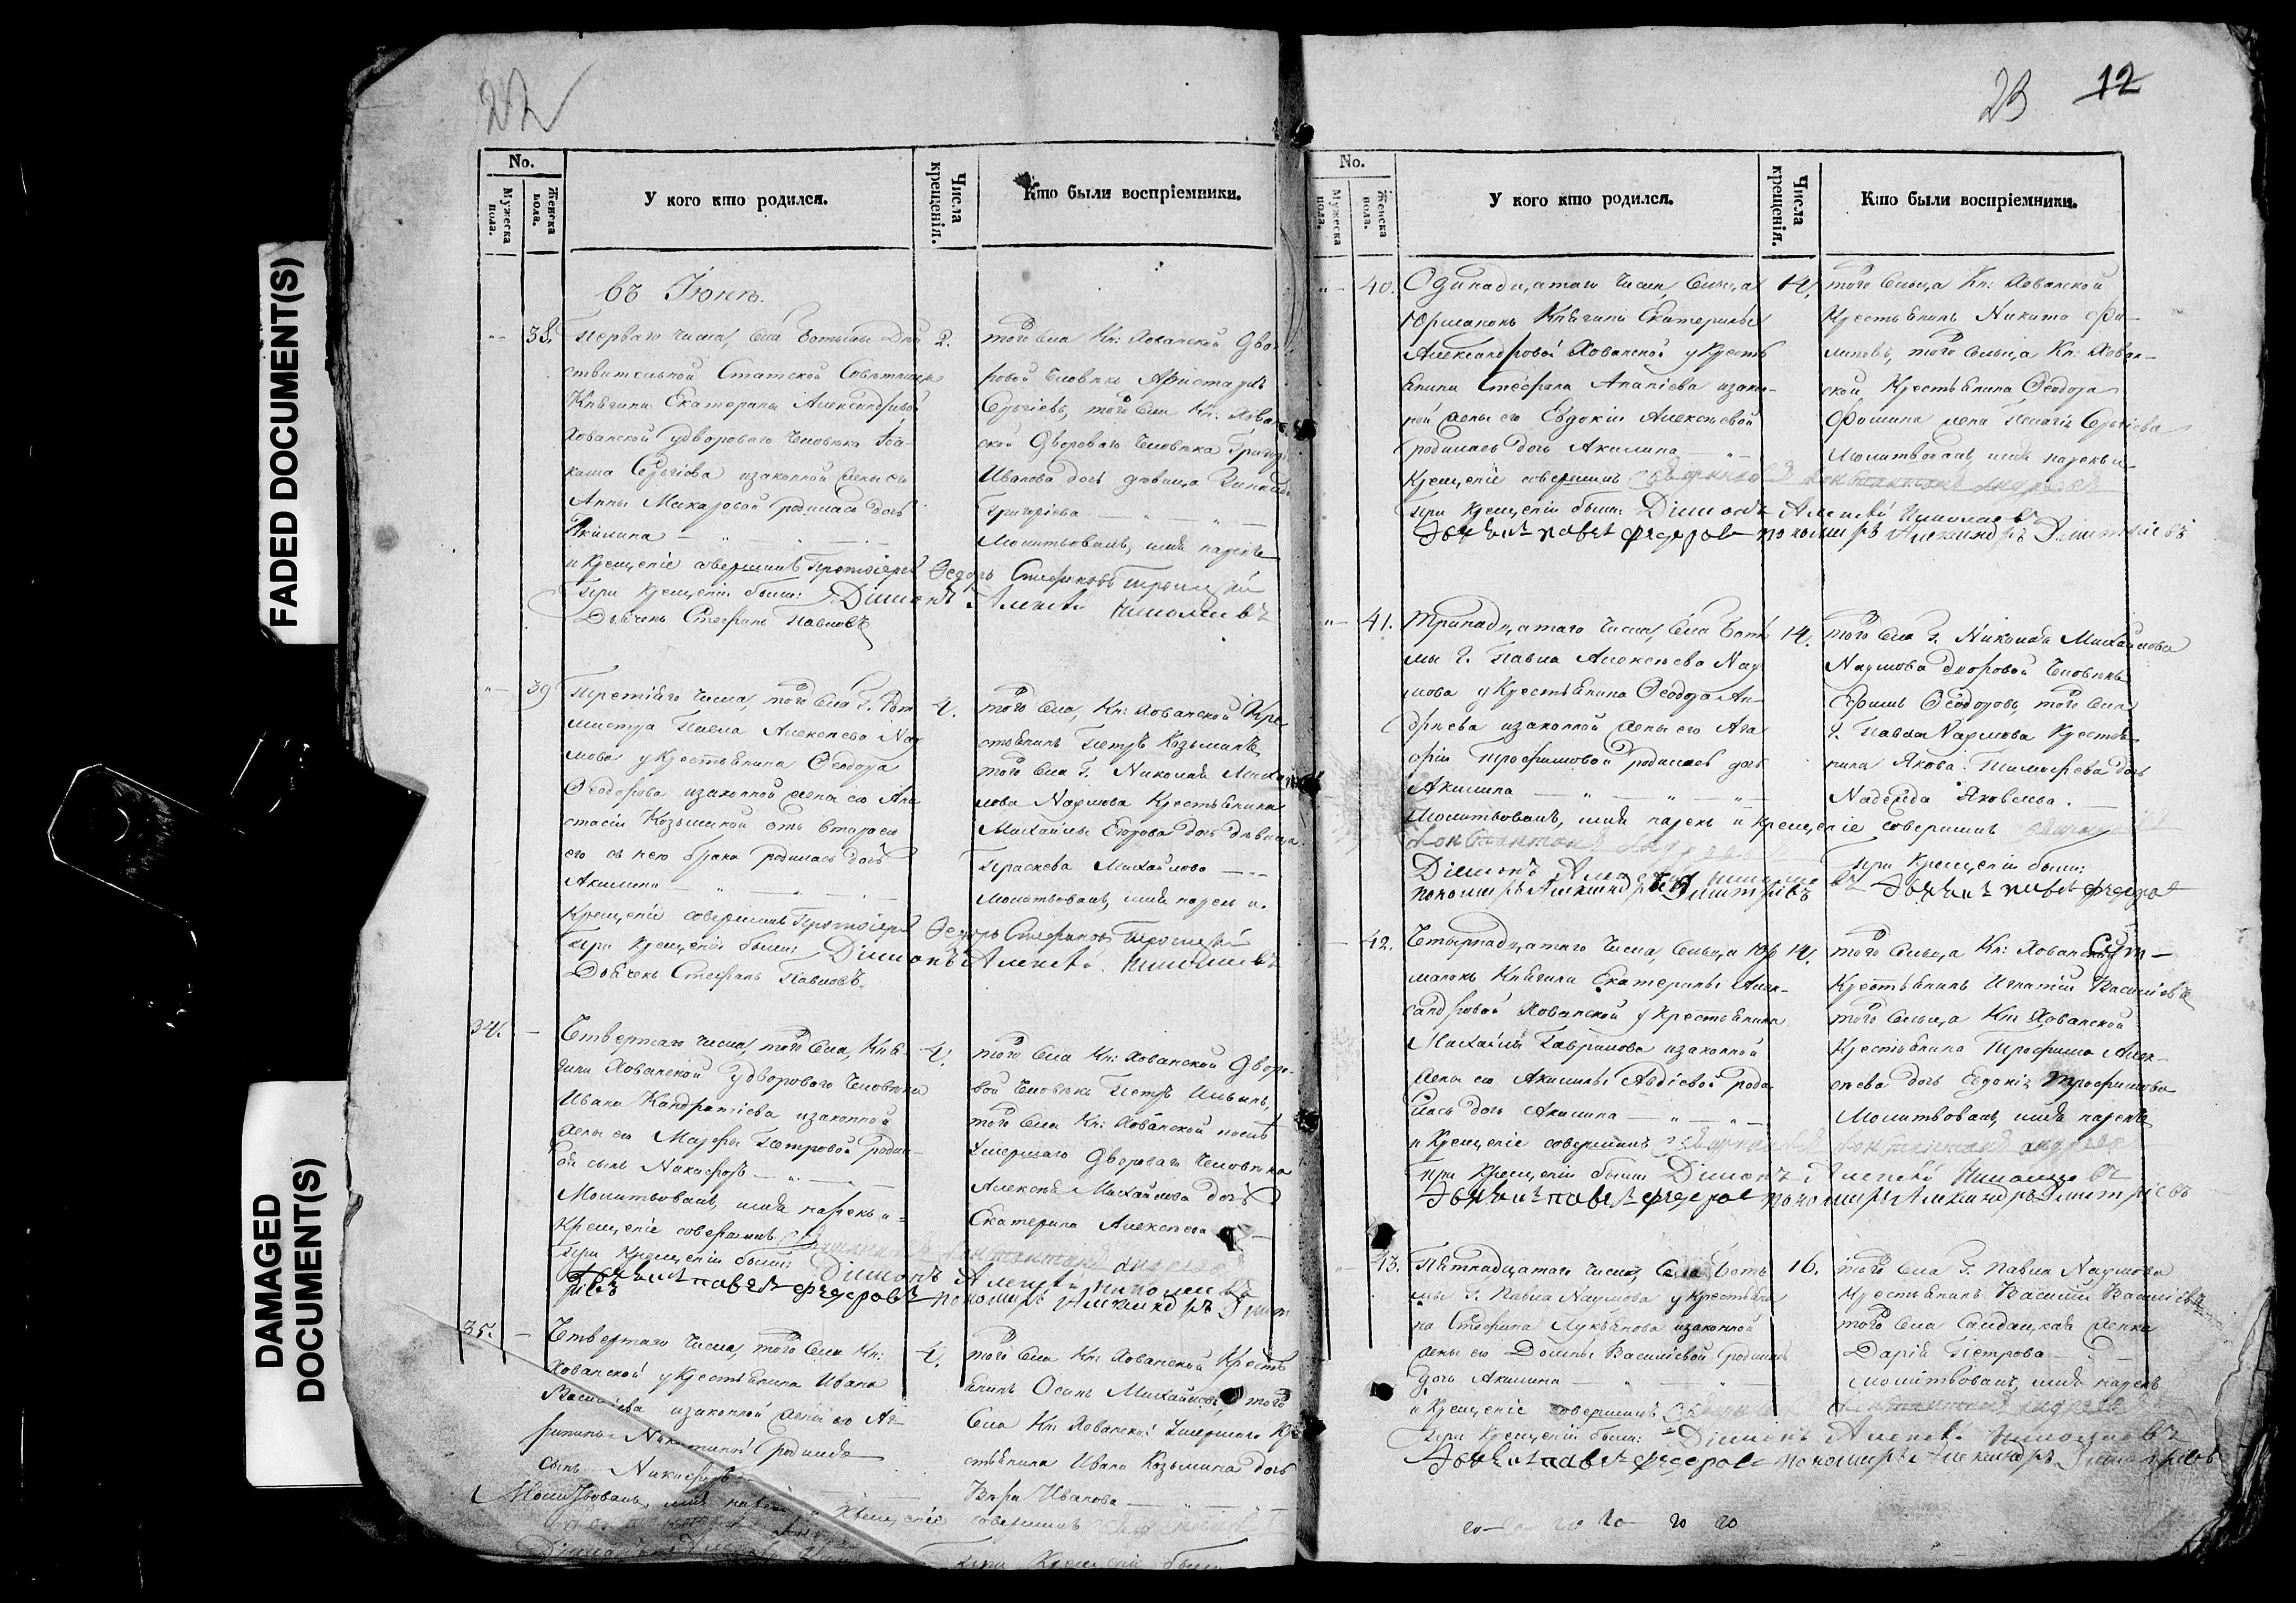 22
FADED DOCUMENT(S)
DAMAGED
DOCUMENT(S)
No.
Мужеска пола.
Женска пола.
У кого кто родился.
Числа крещенія.
Кто были воспріемники.
въ Іюнѣ.
38. Перваго числа, села Ботьмы Дѣй 2.
ствительной Статской Совѣтницы
Княгини Екатерины Александровой
Хованской удворового человѣка
Сергѣева иззаконной жены его
Анны Макаровой родилась дочь
Акилина
и крещеніе совершилъ Протоіерей Ѳедоръ Стефановъ Троицкій
При крещеніи были: Діаконъ Алексѣй Николаевъ
Дьячекъ Стефанъ Павловъ
того села Кн: Хованской Дво-
ровой человѣкъ
Сергѣевъ, того села Кн: Хован
ской Дворового человѣка Григорія
Иванова дочь дѣвица
Григорьева
Молитвовалъ, имя нарекъ
39 Третіяго числа, того села Г. Рот 4.
мистра Павла Алексѣева Нау
мова у крестьянина Ѳеодора
Ѳеодорова иззаконной жены его Ана
стасіи Козьминой отъ втораго
его съ нею брака родилась дочь
Акилина
Крещеніе совершилъ Протоіерей Ѳедоръ Стефановъ Троицкій
При крещеніи были: Діаконъ Алексѣй Николаевъ
Дьячекъ Стефанъ Павловъ.
того села, Кн: Хованской Кре
стьянинъ Петръ Козьминъ,
того села Г. Николая Михай
лова Наумова Крестьянина
Михайлы Егорова дочь дѣвица
Праскева Михайлова
молитвовалъ, имя нарекъ и
34. Четвертаго числа, того села, Кня 4.
гини Хованской удворового человѣка
Ивана Кандратіева иззаконной
жены его Марфы Петровой родил-
ся сынъ Никифоръ
Молитвовалъ, имя нарекъ и
Крещеніе совершилъ Священникъ Константинъ Андреевъ
При крещеніи были: Діаконъ Алексѣй Николаевъ
Дьячекъ Павелъ Федоровъ пономарь Александръ Дмит
ріевъ
того села Кн: Хованской Дворо-
вой человѣкъ Петръ Ильинъ,
того села Кн: Хованской послѣ
умершаго Дворового человѣка
Алексѣя Михайлова дочь
Екатерина Алексѣева
35. Четвертаго числа, того села Кн: 4.
Хованской у крестьянина Ивана
Васильева иззаконной жены его Аг-
рипины Никитиной родился
сынъ Никифоръ
Молитвовалъ, имя нарекъ и Крещеніе совершилъ
При Крещеніи были
того села Кн: Хованской Кресть
янинъ Осипъ Михайловъ, того
села Кн: Хованской умершаго Кре
стьянина Ивана Козьмина дочь
Вѣра Иванова
23 12
No.
Мужеска пола.
Женска пола.
У кого кто родился.
Числа крещенія.
Кто были воспріемники.
40. Одинадцатаго числа, сельца 14.
Юрманокъ Княгини Екатерины
Александровой Хованской у кресть
янина Стефана Ананіева иззакон-
ной жены его Евдокіи Алексѣевой
родилась дочь Акилина
Крещеніе совершилъ Священникъ Константинъ Андреевъ
При Крещеніи были: Діаконъ Алексѣй Николаевъ
Дьячекъ Павелъ Федоровъ пономарь Александръ Дмитріевъ
того сельца Кн: Хованской
Крестьянинъ Никита Фи-
липовъ, того сельца Кн: Хован-
ской Крестьянина Ѳеодора
Фомина жена Пелагія Сергѣева
Молитвовалъ, имя нарекъ и
41. Тринадцатаго числа, села Боть 14.
мы Г. Павла Алексѣева Нау
мова у Крестьянина Ѳеодора Ан-
дрѣева иззаконной жены его Ага
фіи Трофимовой родилась дочь
Акилина
Молитвовалъ, имя нарекъ и Крещеніе совершилъ Священникъ
Константинъ Андреевъ
При Крещеніи были:
Діаконъ Алексѣй Николаевъ Дьячекъ Павелъ Федоровъ
пономарь Александръ Дмитріевъ
того села Г. Николая Михайлова
Наумова дворовой человѣкъ
Ефимъ Ѳеодоровъ, того села
Г. Павла Наумова Крестья-
нина Якова Тимофѣева дочь
Надежда Яковлева.
42. Четырнадцатаго числа, сельца Юр 14.
манокъ Княгини Екатерины Алек-
сандровой Хованской у Крестьянина
Михайлы Гаврилова иззаконной
жены его Акилины Авдіевой роди
лась дочь Акилина
и Крещеніе совершилъ Священникъ Константинъ Андреевъ
При Крещеніи были Діаконъ Алексѣй Николаевъ
Дьячекъ Павелъ Федоровъ пономарь Александръ Дмитріевъ
того сельца Кн: Хованской
Крестьянинъ Игнатій Васильевъ
того сельца Кн: Хованской
Крестьянина Трофима Алек-
сѣева дочь Евдокія Трофимова
Молитвовалъ, имя нарекъ
43. Пятнадцатаго числа, Села Боть 16.
мы Г. Павла Наумова у крестьяни
на Стефана Лукьянова иззаконной
жены его Домны Васильевой родилась
дочь Акилина
и Крещеніе совершилъ Священникъ Константинъ Андреевъ
При Крещеніи были: Діаконъ Алексѣй Николаевъ
Дьячекъ Павелъ Федоровъ пономарь Александръ Дмитріевъ
того села Г. Павла Наумова
Крестьянинъ Василій Васильевъ
того села Салдацкая женка
Дарія Петрова
молитвовалъ, имя нарекъ